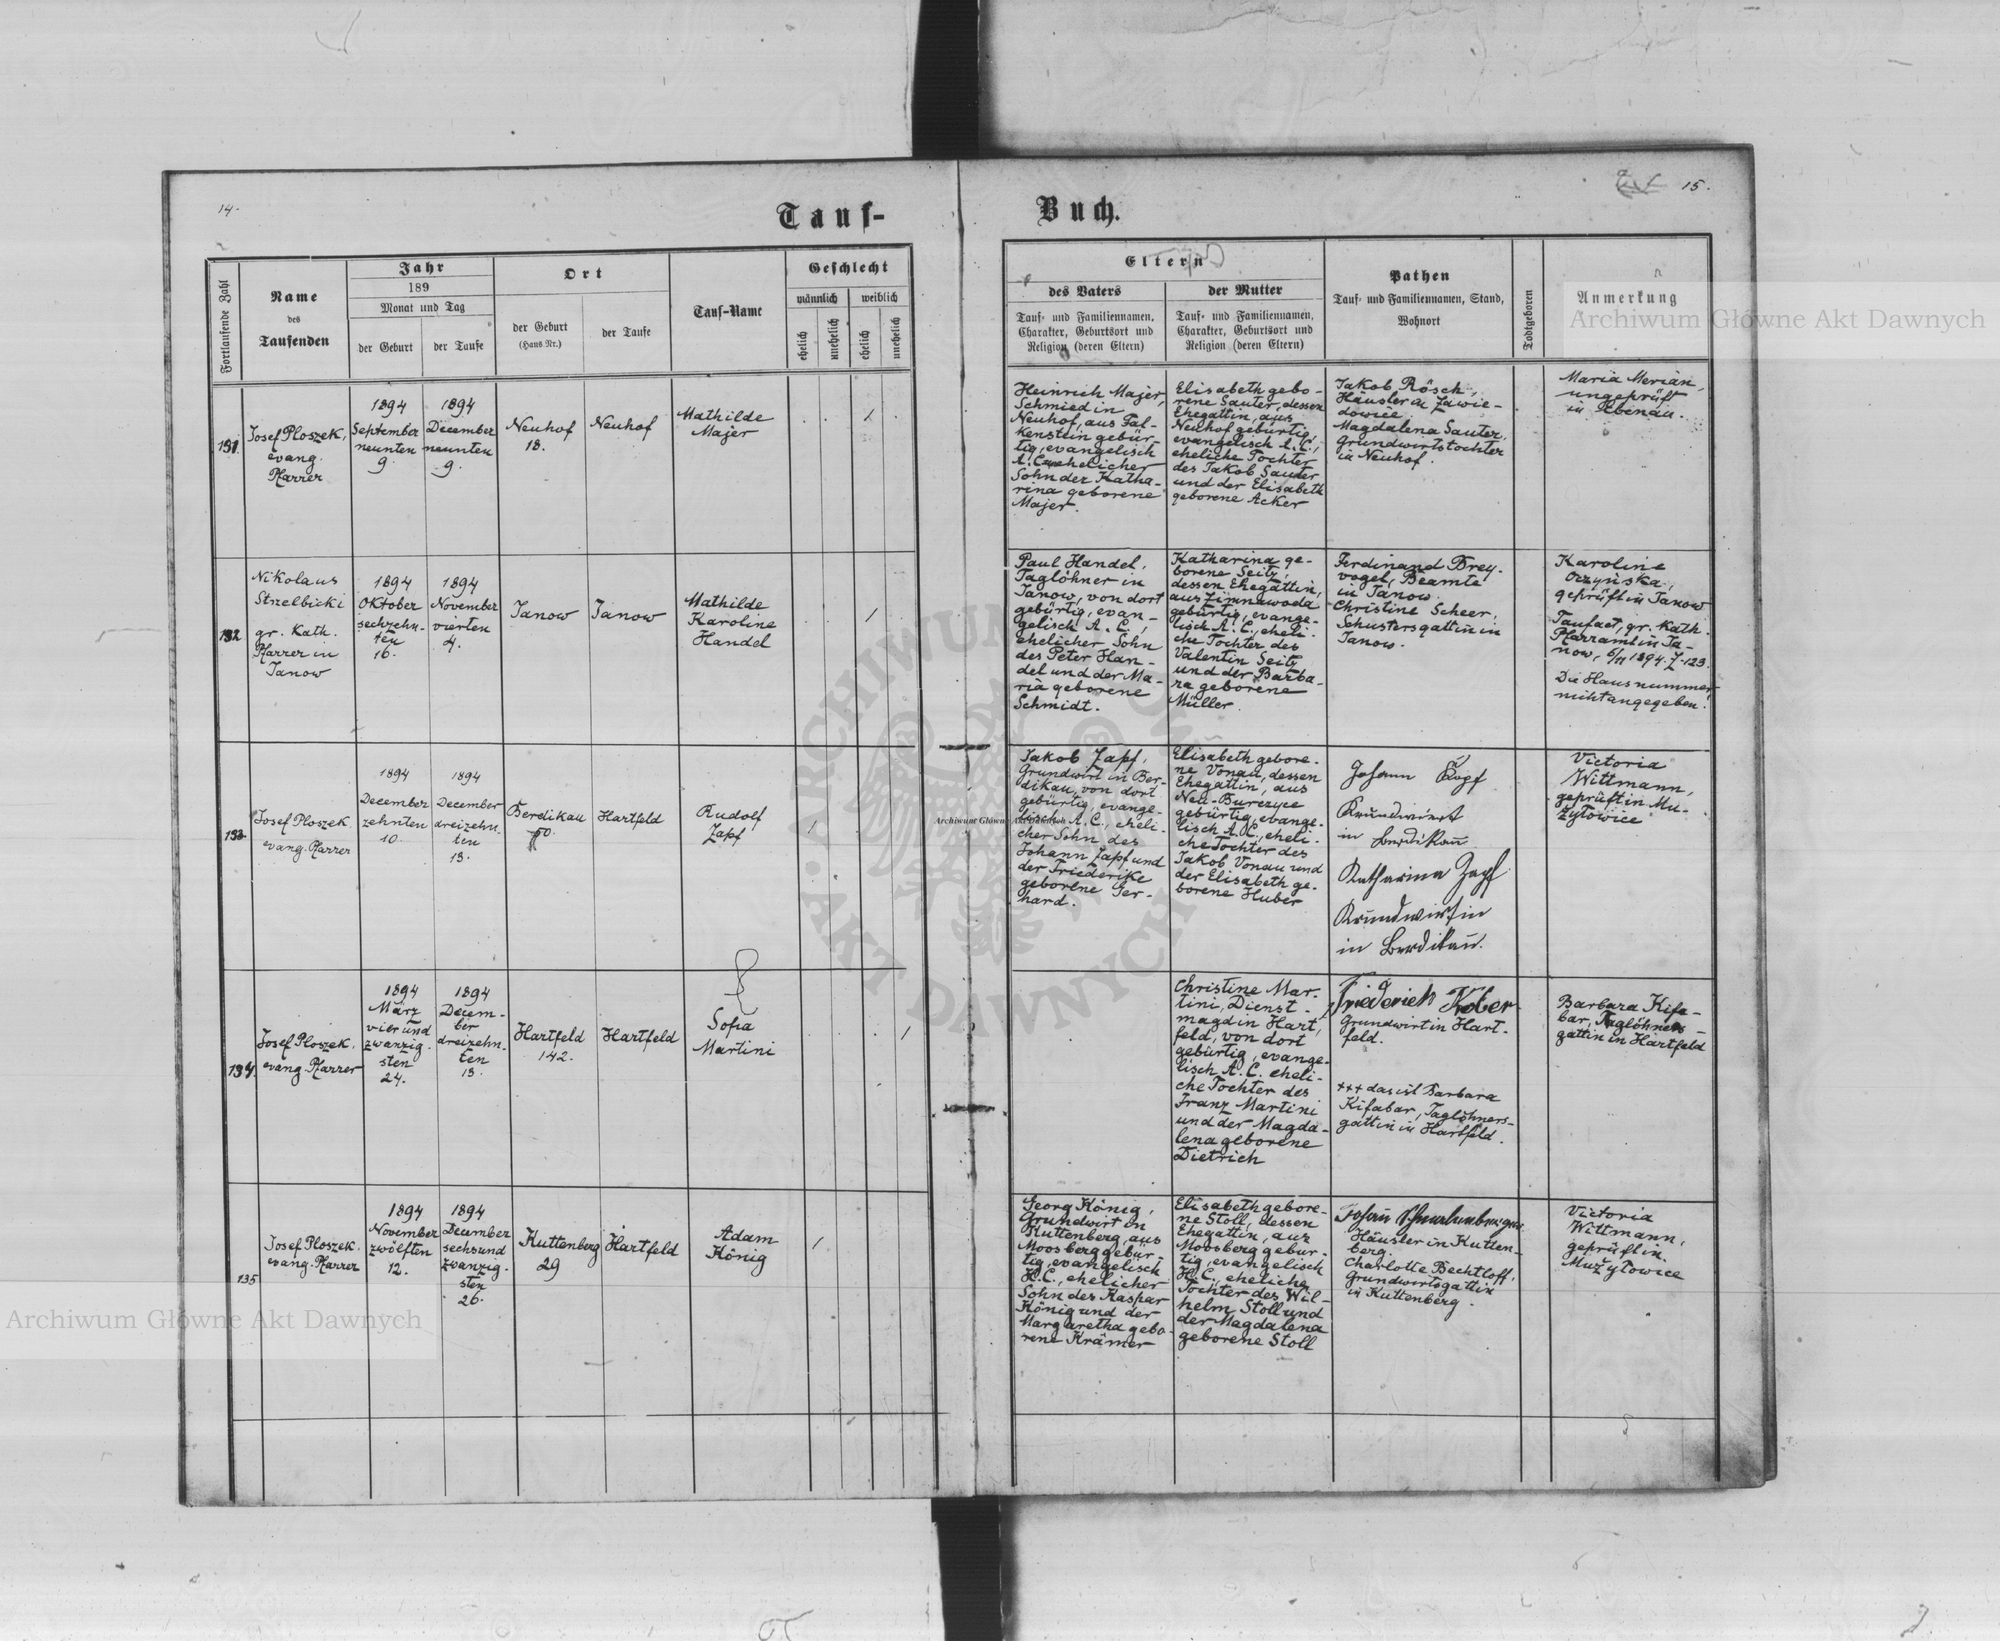 14.
15.
Tauf-
Buch.
Fortlaufende Zahl
Name
des
Taufenden
Jahr
189
Monat und Tag
der Geburt
der Taufe
Ort
der Geburt
(Haus-Nr.)
der Taufe
Tauf-Name
Geschlecht
männlich
weiblich
ehelich
unehelich
ehelich
unehelich
Eltern
des Vaters
Tauf- und Familiennamen,
Charakter, Geburtsort und
Religion (deren Eltern)
der Mutter
Tauf- und Familiennamen,
Charakter, Geburtsort und
Religion (deren Eltern)
Pathen
Tauf- und Familiennamen, Stand,
Wohnort
Todtgeboren
Anmerkung
Archiwum Główne Akt Dawnych
131.
Josef Ploszek,
evang.
Pfarrer
1894
September
neunten
9.
1894
December
neunten
9.
Neuhof
18.
Neuhof
Mathilde
Majer
Heinrich Majer,
Schmied in
Neuhof, aus Fal-
kenstein gebür-
tig, evangelisch
A. C. unehelicher
Sohn der Katha-
rina geborene
Majer.
Elisabeth gebo-
rene Sauter, dessen
Ehegattin, aus
Neuhof gebürtig,
evangelisch A. C.,
eheliche Tochter
des Jakob Sauter
und der Elisabeth
geborene Acker
Jakob Rösch,
Häusler in Zawie-
dowice.
Magdalena Sauter,
Grundwirtstochter
in Neuhof.
Maria Merian,
ungeprüft
in Ebenau.
132
Nikolaus
Strzelbicki
gr. Kath.
Pfarrer in
Janow
1894
Oktober
sechzehn-
ten
16.
1894
November
vierten
4.
Janow
Janow
Mathilde
Karoline
Handel
Paul Handel,
Taglöhner in
Janow, von dort
gebürtig, evan-
gelisch A. C.,
ehelicher Sohn
des Peter Han-
del und der Ma-
ria geborene
Schmidt.
Katharina ge-
borene Seitz,
dessen Ehegattin,
aus Zimnawoda
gebürtig, evange-
lisch A. C., eheli-
che Tochter des
Valentin Seitz
und der Barba-
ra geborene
Müller.
Ferdinand Brey-
vogel, Beamte
in Janow.
Christine Scheer,
Schustersgattin in
Janow.
Karoline
Oczyńska,
geprüft in Janow
Taufact, gr. Kath.
Pfarramt in Ja-
now, 6/11 1894. Z. 123.
Die Hausnummer
nicht angegeben.
133
Josef Ploszek.
evang. Pfarrer
1894
December
zehnten
10.
1894
December
dreizehn-
ten
13.
Berdikau
Hartfeld
Rudolf
Zapf
Jakob Zapf,
Grundwirt in Ber-
dikau, von dort
gebürtig, evange-
lisch A. C., eheli-
cher Sohn des
Johann Zapf und
der Friederike
geborene Ger-
hard.
Elisabeth gebore-
ne Vonau, dessen
Ehegattin, aus
Neu-Burczyce
gebürtig, evange-
lisch A. C., eheli-
che Tochter des
Jakob Vonau und
der Elisabeth ge-
borene Huber
Johann Zapf
Grundwirt
in Berdikau
Katharina Zapf
Grundwirtin
in Berdikau.
Victoria
Wittmann,
geprüft in Mu-
żyłowice
Archiwum Główne Akt Dawnych
134.
Josef Ploszek.
evang. Pfarrer
1894
März
vierund
zwanzig-
sten
24.
1894
Decem-
ber
dreizehn-
ten
13.
Hartfeld
142.
Hartfeld
Sofia
Martini
Christine Mar-
tini, Dienst-
magd in Hart-
feld, von dort
gebürtig, evange-
lisch A. C. eheli-
che Tochter des
Franz Martini
und der Magda-
lena geborene
Dietrich
Friederich Kober
Grundwirt in Hart-
feld.
+++ das ist Barbara
Kifabar, Taglöhners-
gattin in Hartfeld.
Barbara Kifa-
bar, Taglöhners-
gattin in Hartfeld
135
Josef Ploszek.
evang. Pfarrer
1894
November
zwölften
12.
1894
December
sechsund
zwanzig-
sten
26.
Kuttenberg
29
Hartfeld
Adam
König
Georg König,
Grundwirt in
Kuttenberg, aus
Moosberg gebür-
tig, evangelisch
H. C., ehelicher
Sohn des Kaspar
König und der
Margaretha gebo-
rene Krämer
Elisabeth gebore-
ne Stoll, dessen
Ehegattin, aus
Moosberg gebür-
tig, evangelisch
H. C., eheliche
Tochter des Wil-
helm Stoll und
der Magdalena
geborene Stoll
Johann
Häusler in Kutten-
berg.
Charlotte Bechtloff,
Grundwirtsgattin
in Kuttenberg.
Victoria
Wittmann,
geprüft in
Mużyłowice
Archiwum Główne Akt Dawnych
ARCHIWUM GŁÓWNE AKT DAWNYCH